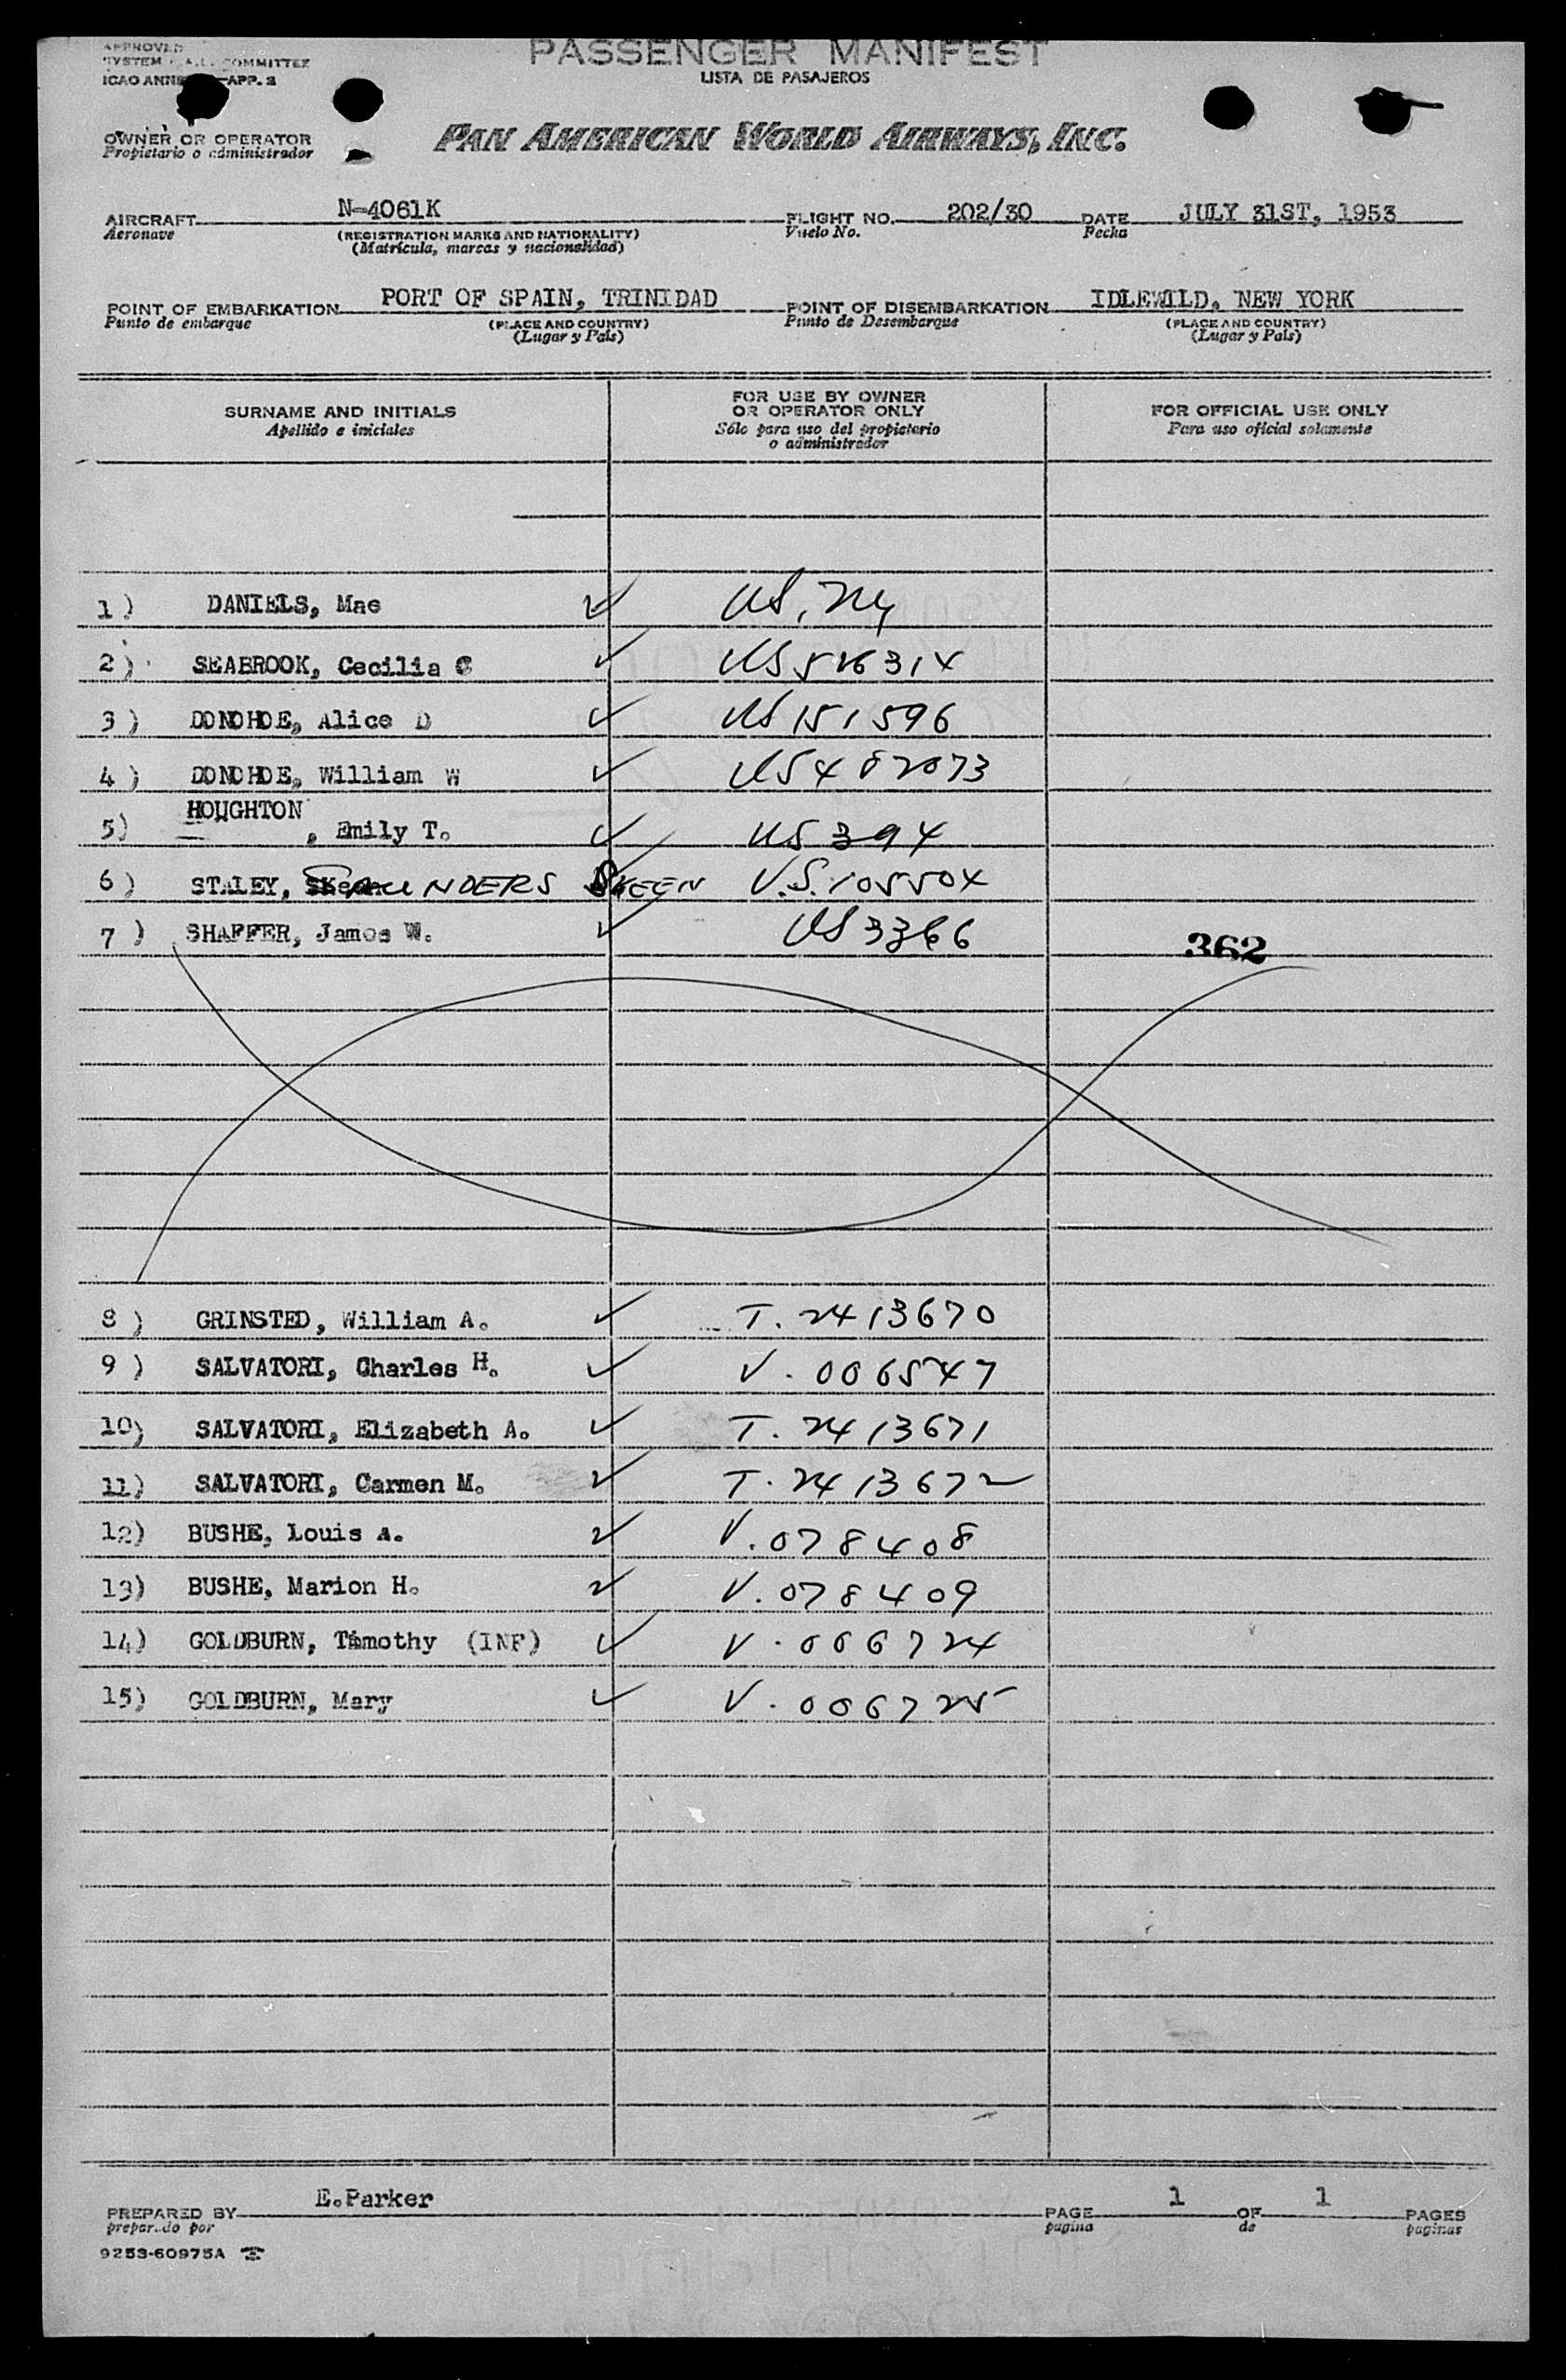 APPROVED
SYSTEM F.A.L. COMMITTEE
ICAO ANNE APP. 2
PASSENGER MANIFEST
LISTA DE PASAJEROS
OWNER OR OPERATOR
Propietario o administrador
PAN AMERICAN WORLD AIRWAYS, INC.
AIRCRAFT N-4061K FLIGHT NO. 202/30 DATE JULY 31ST, 1953
Aeronave (REGISTRATION MARKS AND NATIONALITY) Vuelo No. Fecha
(Matrícula, marcas y nacionalidad)
POINT OF EMBARKATION PORT OF SPAIN, TRINIDAD POINT OF DISEMBARKATION IDLEWILD, NEW YORK
Punto de embarque (PLACE AND COUNTRY) Punto de Desembarque (PLACE AND COUNTRY)
(Lugar y País) (Lugar y País)
SURNAME AND INITIALS
Apellido e iniciales
FOR USE BY OWNER
OR OPERATOR ONLY
Sólo para uso del propietario
o administrador
FOR OFFICIAL USE ONLY
Para uso oficial solamente
1) DANIELS, Mae ✓ US, NY
2) SEABROOK, Cecilia C ✓ US 526314
3) DONOHOE, Alice D ✓ US 151596
4) DONOHOE, William W ✓ US 482073
5) HOUGHTON, Emily T. ✓ US 394
6) STALEY, SAUNDERS SKEEN ✓ U.S. 105504
7) SHAFFER, James W. ✓ US 3366
362
8) GRINSTED, William A. ✓ T. 2413670
9) SALVATORI, Charles H. ✓ V. 006547
10) SALVATORI, Elizabeth A. ✓ T. 2413671
11) SALVATORI, Carmen M. ✓ T. 2413672
12) BUSHE, Louis A. ✓ V. 078408
13) BUSHE, Marion H. ✓ V. 078409
14) GOLDBURN, Timothy (INF) ✓ V. 006724
15) GOLDBURN, Mary ✓ V. 006725
PREPARED BY E. Parker PAGE 1 OF 1 PAGES
preparado por pagina de paginas
9253-60975A